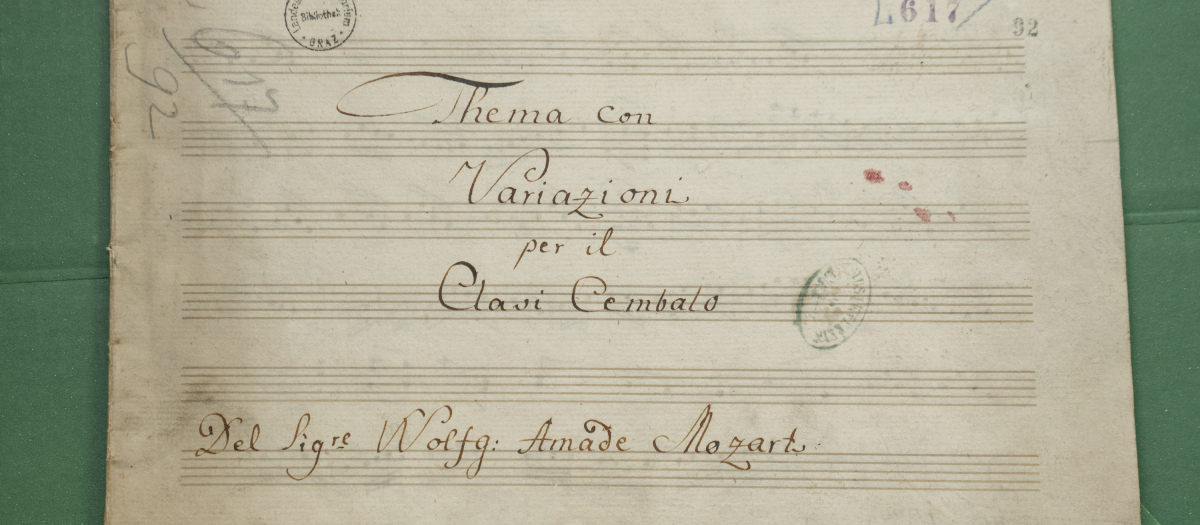 Bibliothek
GRAZ
L 617
92
617
92
Thema con
Variazioni
per il
Clavi Cembalo
Del Sigre Wolfg: Amade Mozart